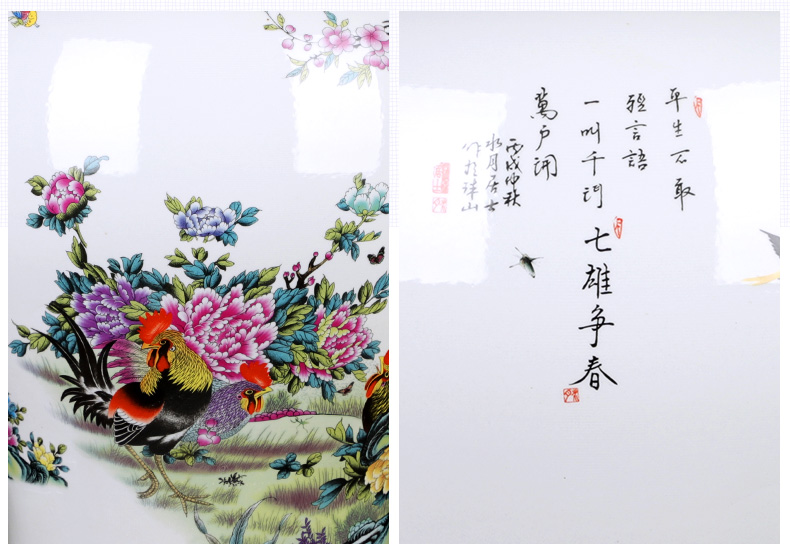 平生不敢
輕言語
一叫千門
萬戶開
七雄争春
丙戌仲秋
水月居士
作於珠山